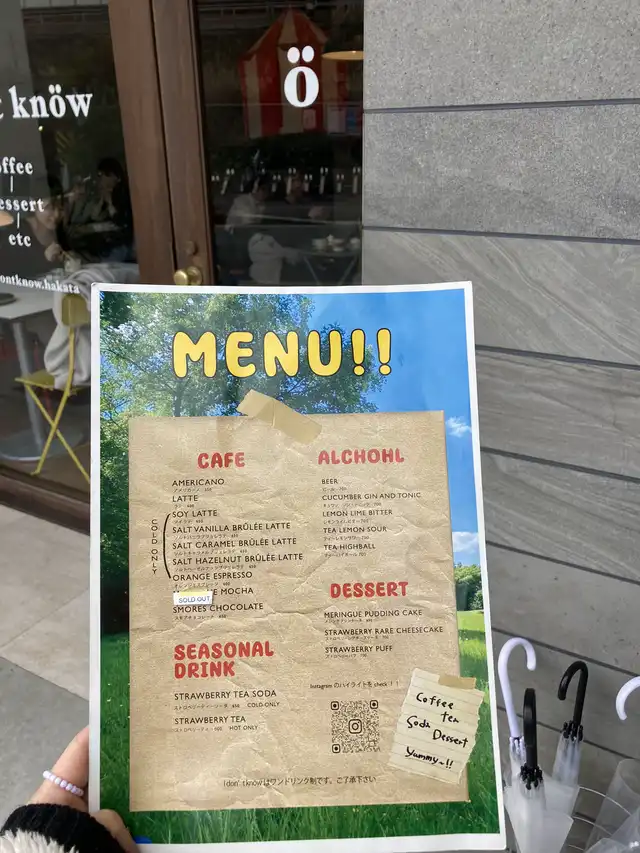 ö
t knöw
offee
essert
etc
ontknow.hakata
MENU!!
CAFE
AMERICANO
アメリカーノ
LATTE
SOY LATTE
SALT VANILLA BRÛLÉE LATTE
SALT CARAMEL BRÛLÉE LATTE
SALT HAZELNUT BRÛLÉE LATTE
ORANGE ESPRESSO
COLD ONLY
MOCHA
SOLD OUT
SMORES CHOCOLATE
SEASONAL
DRINK
STRAWBERRY TEA SODA
COLD ONLY
STRAWBERRY TEA
HOT ONLY
ALCHOHL
BEER
CUCUMBER GIN AND TONIC
LEMON LIME BITTER
TEA LEMON SOUR
TEA HIGHBALL
DESSERT
MERINGUE PUDDING CAKE
STRAWBERRY RARE CHEESECAKE
STRAWBERRY PUFF
Instagram のハイライトを check！！
Coffee
tea
Soda Dessert
Yummy~!!
I don' tknowはワンドリンク制です、ご了承下さい